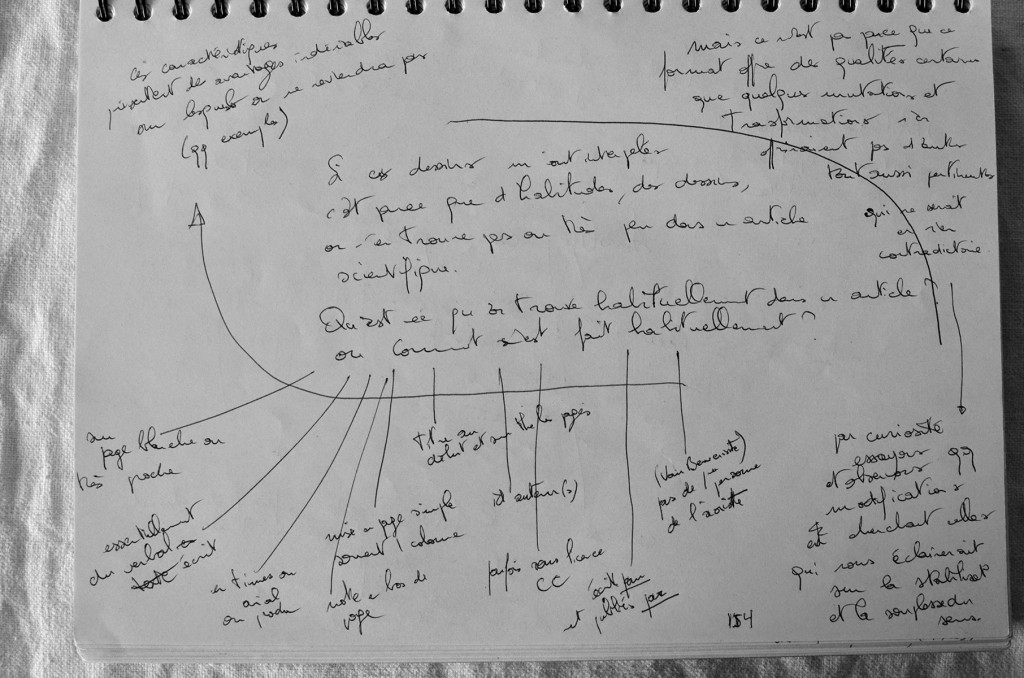 ces caractéristiques
présentent des avantages indéniables
sur lesquels on ne reviendra pas
(qq exemples)
mais ce n'est pas parce que ce
format offre des qualités certaines
que quelques mutations et
transformations n'en
offriraient pas d'autres
tout aussi pertinentes
qui ne serait
en rien
contradictoire
Si ces dessins m'ont interpelés
c'est parce que d'habitudes, des dessins,
on n'en trouve pas ou très peu dans un article
scientifique.
Qu'est-ce qu'on trouve habituellement dans un article ?
ou Comment s'est fait habituellement ?
sur
page blanche ou
très proche
essentiellement
du verbal
texte écrit
en times ou
arial
ou
mise en page simple
souvent 1 colonne
note en bas de
page
titre au
début et sur les pages
d'auteur(s)
parfois sous licence
CC
écrits par
et publiés par
(voir Benveniste)
pas de 1ère personne
de l'
par curiosité
essayons
et observons qq
modifications
en cherchant celles
qui nous éclaireraient
sur la stabilisat°
et la souplesse du
sens.
154